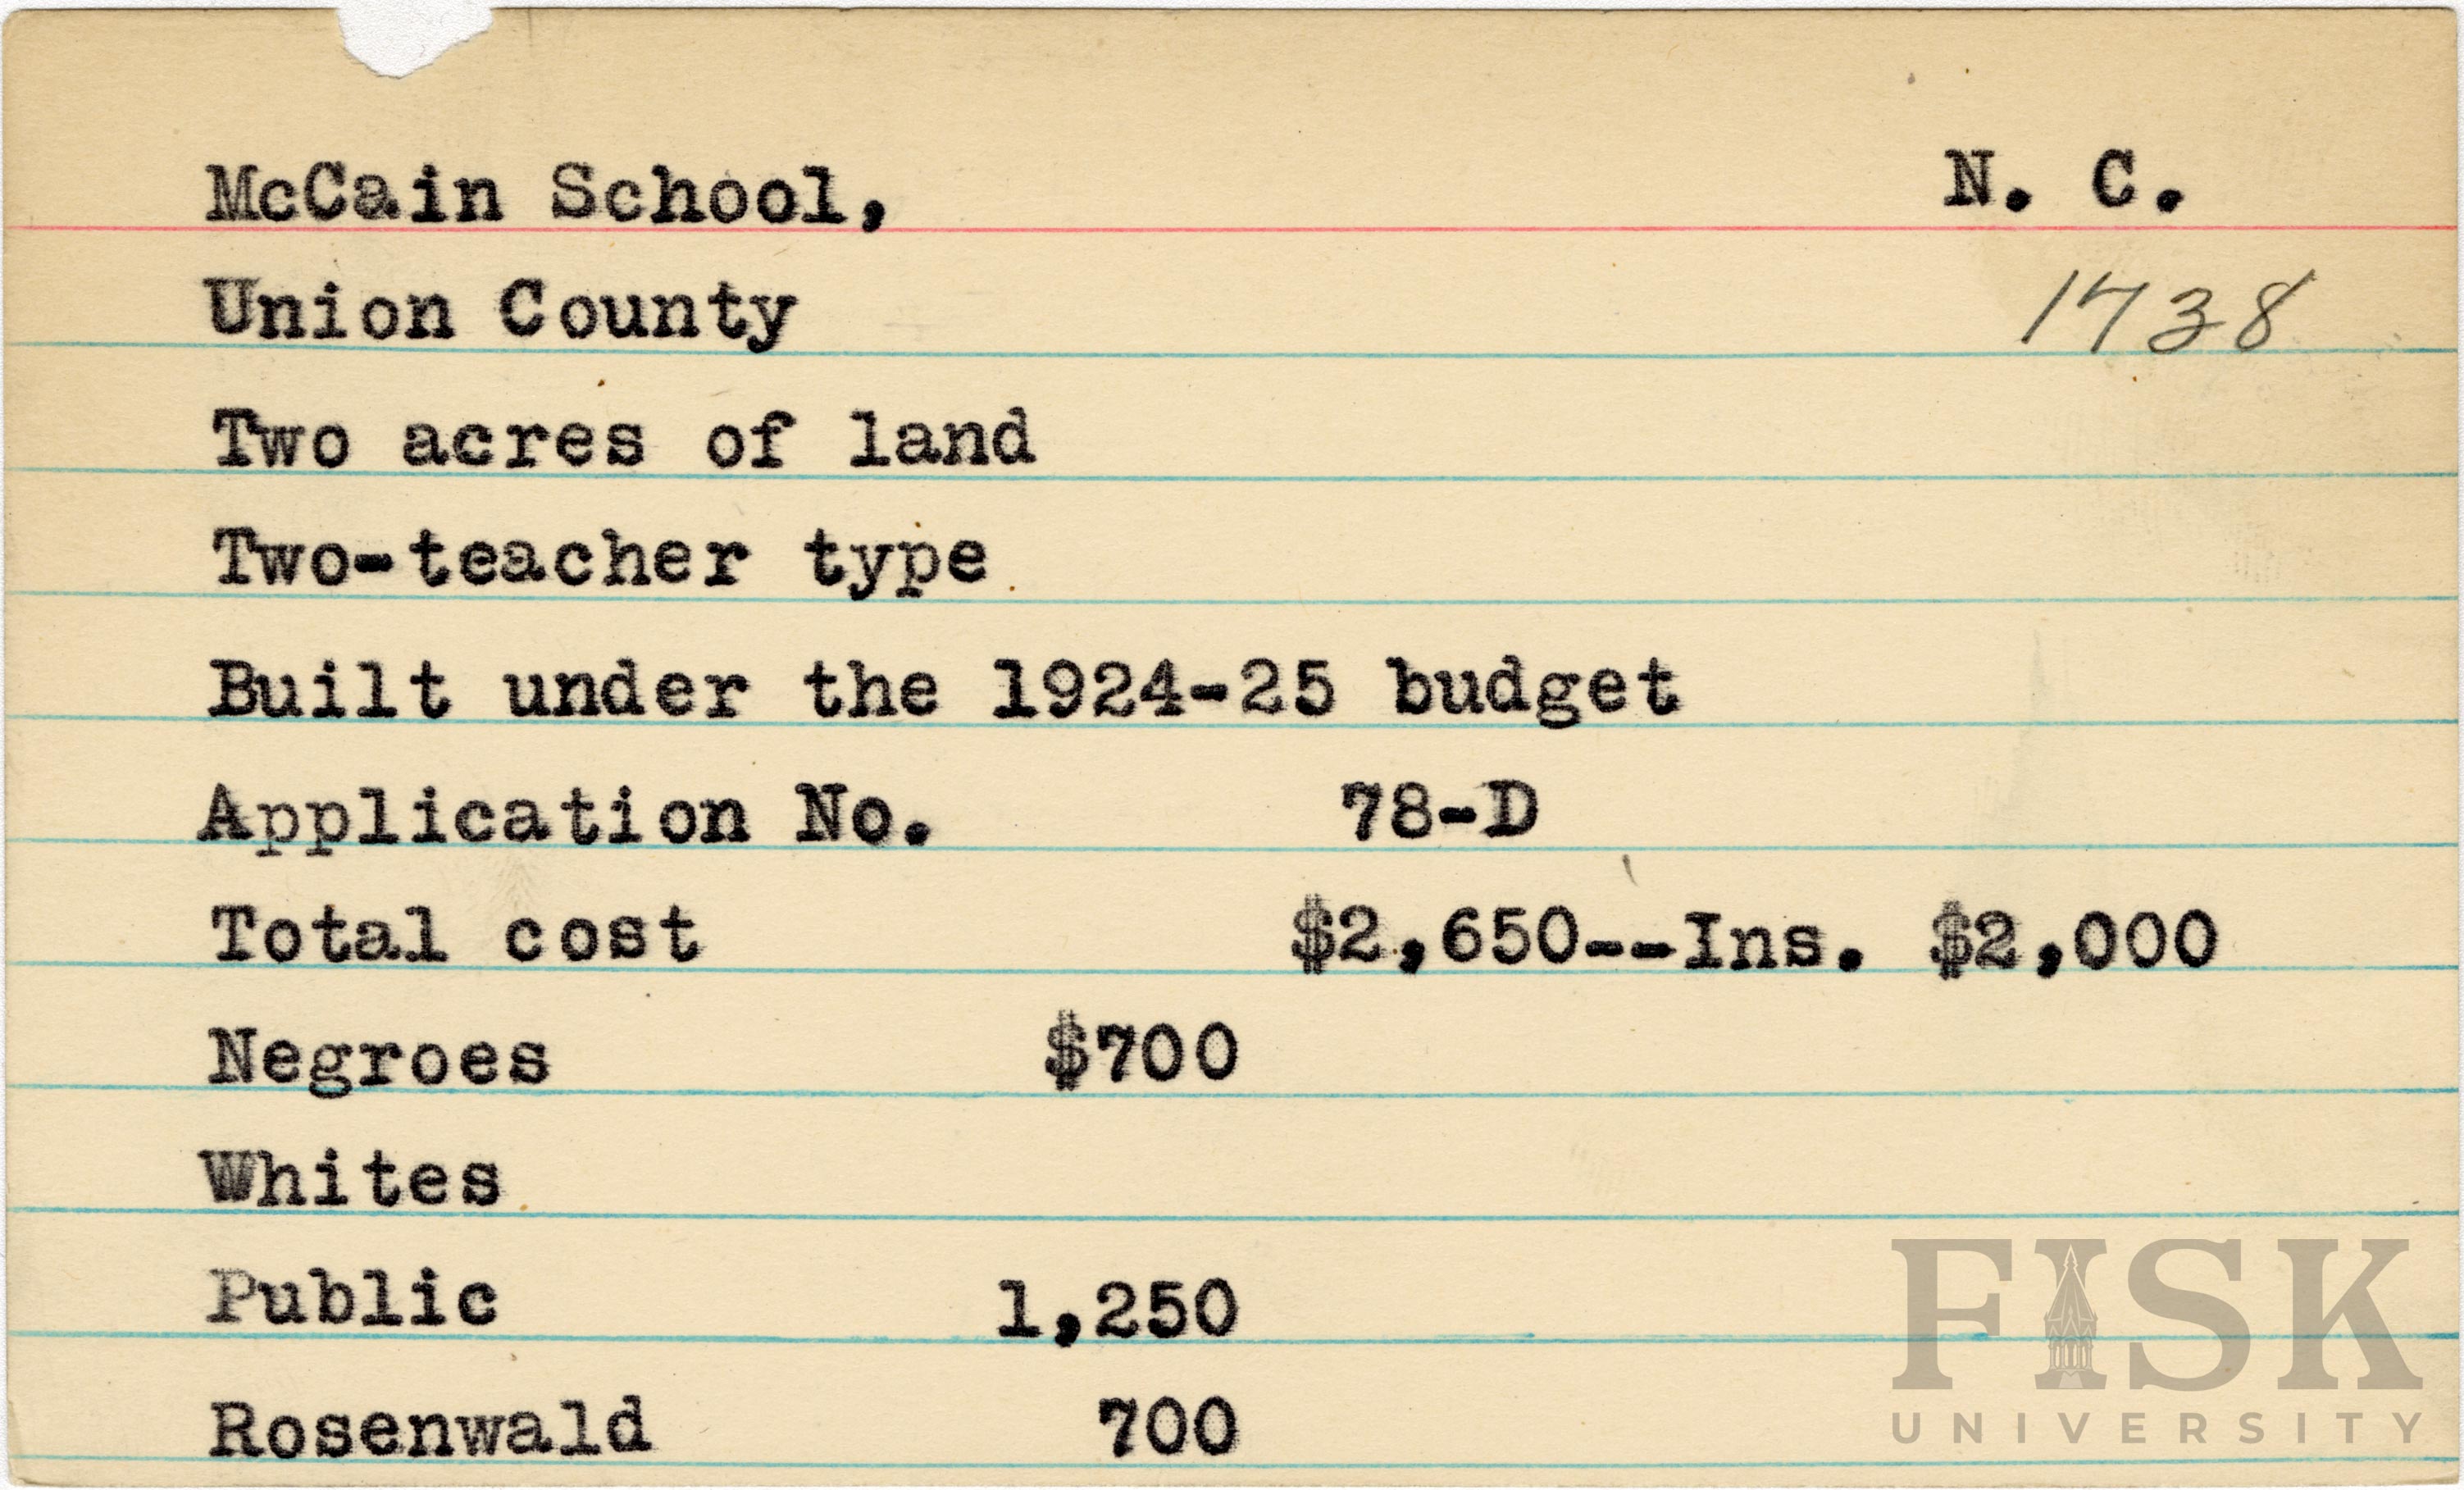 McCain School, N. C.
Union County 1738
Two acres of land
Two-teacher type
Built under the 1924-25 budget
Application No. 78-D
Total cost $2,650--Ins. $2,000
Negroes $700
Whites
Public 1,250
Rosenwald 700
FISK
UNIVERSITY